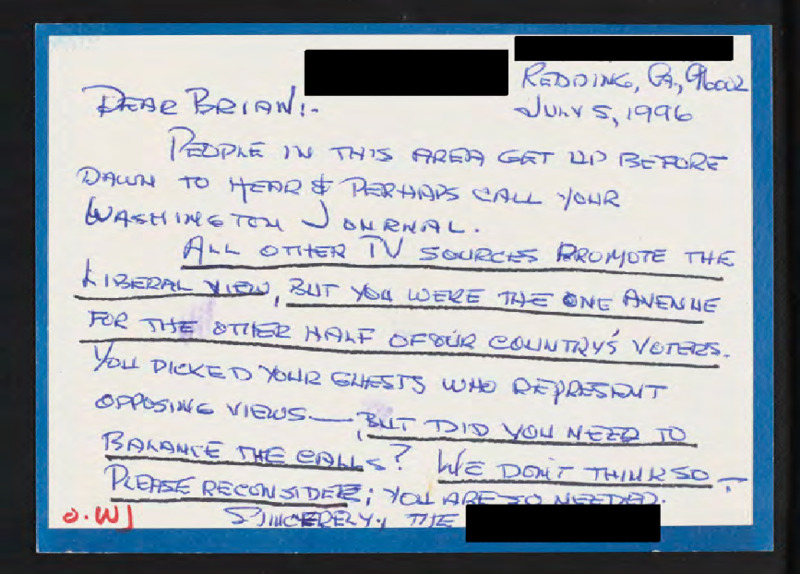 REDDING, CA, 96002
DEAR BRIAN:-
JULY 5, 1996
PEOPLE IN THIS AREA GET UP BEFORE
DAWN TO HEAR & PERHAPS CALL YOUR
WASHINGTON JOURNAL.
ALL OTHER TV SOURCES PROMOTE THE
LIBERAL VIEW, BUT YOU WERE THE ONE AVENUE
FOR THE OTHER HALF OF OUR COUNTRY'S VOTERS.
YOU PICKED YOUR GUESTS WHO REPRESENT
OPPOSING VIEWS — BUT DID YOU NEED TO
BALANCE THE CALLS? WE DON'T THINK SO -
PLEASE RECONSIDER; YOU ARE SO NEEDED.
SINCERELY, THE
O.WJ